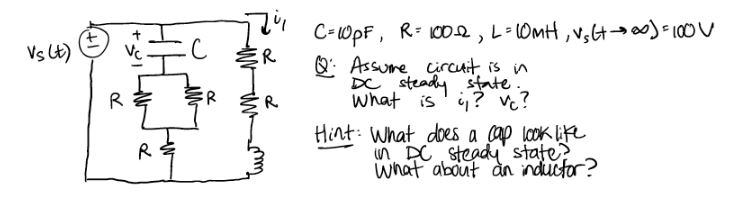 i₁
C=10pF, R=100Ω, L=10mH, vₛ(t→∞)=100V
vₛ(t)
±
+
vc
−
C
R
Q: Assume circuit is in
DC steady state.
What is i₁? vc?
R
R
R
R
Hint: What does a cap look like
in DC steady state?
What about an inductor?